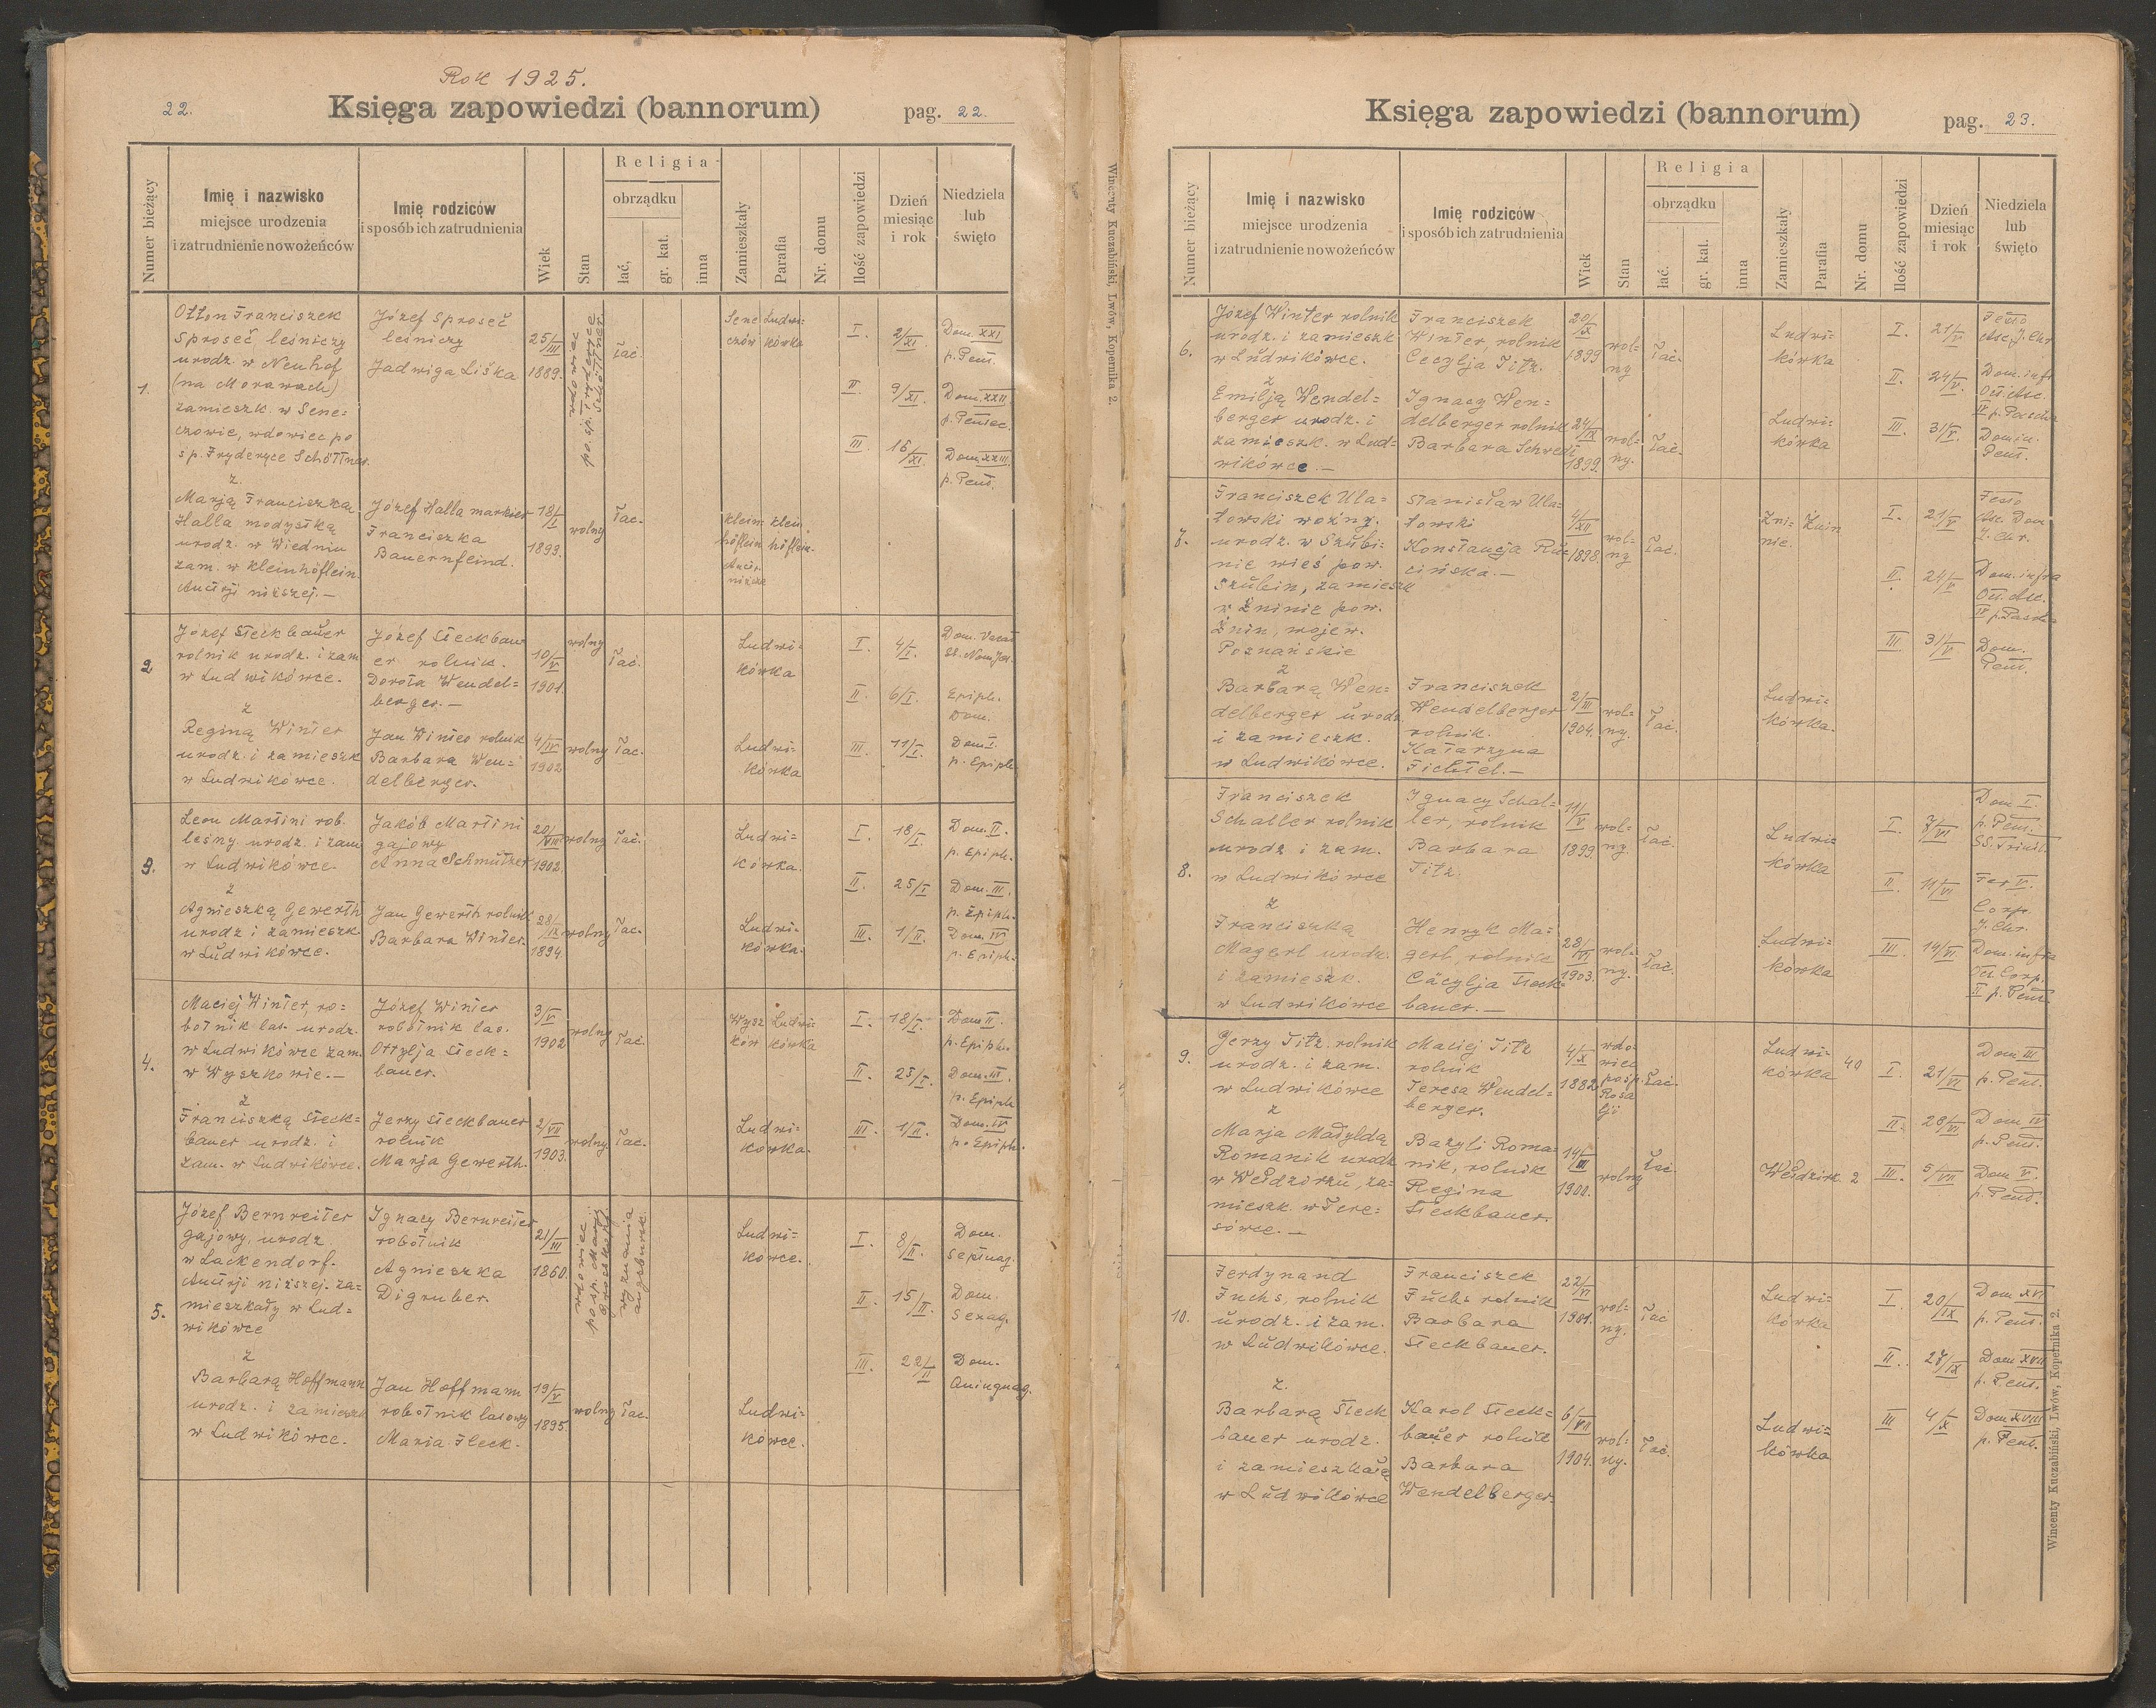 Rok 1925.
22.
Księga zapowiedzi (bannorum)
pag. 22.
Numer bieżący
Imię i nazwisko
miejsce urodzenia
i zatrudnienie nowożeńców
Imię rodziców
i sposób ich zatrudnienia
Wiek
Stan
Religia
obrządku
łać.
gr. kat.
inna
Zamieszkały
Parafia
Nr. domu
Ilość zapowiedzi
Dzień
miesiąc
i rok
Niedziela
lub
święto
1.
Otton Franciszek
Sproseč, leśniczy
urodz. w Neuhof
(na Morawach)
zamieszk. w Sene=
czowie, wdowiec po
sp. Fryderyce Schöttner.
z
Marją Franciszka
Halla modystką
urodz. w Wiedniu
zam. w Kleinhöflein
Austrji niższej.—
Józef Sproseč
leśniczy
Jadwiga Liška
Józef Halla markier
Franciszka
Bauernfeind.
25/III
1889.
18/I
1893.
wdowiec
po sp. Fryderyce
Schöttner
wolny
łać.
łac.
Sene
czów
Ludwi
kówka
Klein
höflein
Klein
höflein.
I.
2/XI.
Dom. XXI
p. Pent.
II.
9/XI.
Dom. XXII
p. Pentec.
III.
16/XI.
Dom. XXIII.
p. Pent.
2
Józef Sieckbauer
rolnik urodz. i zam
w Ludwikówce.
z
Reginą Winter
urodz. i zamieszk
w Ludwikówce.
Józef Sieckbau
er rolnik.
Dorota Wendel=
berger.—
Jan Winter rolnik
Barbara Wen=
delberger.
10/V
1901.
4/IV
1902
wolny
łać.
wolny
łac.
Ludwi=
kówka
Ludwi=
kówka
I.
4/I.
Dom. Vacat
SS. Nom. Jes.
II
6/I.
Epiph.
Dom.
III.
11/I.
Dom I.
p. Epiph.
3.
Leon Martini rob.
leśny urodz. i zam
w Ludwikówce.
z
Agnieszką Gewerth
urodz i zamieszk
w Ludwikówce.
Jakób Martini
gajowy
Anna Schmützer
Jan Gewerth rolnik
Barbara Winter.
20/VIII
1902.
28/IX
1894.
wolny
łac.
wolny
łac.
Ludwi=
kówka.
Ludwi=
kówka.
I.
18/I
Dom. II.
p. Epiph.
II.
25/I
Dom. III.
p. Epiph.
III.
1/II.
Dom. IV
p. Epiph.
4.
Maciej Winter, ro=
botnik las. urodz.
w Ludwikówce zam.
w Wyszkowie.—
z
Franciszką Sieck=
bauer urodz. i
zam. w Ludwikówce.
Józef Winter
robotnik las.
Ottylja Sieck=
bauer.
Jerzy Sieckbauer
rolnik
Marja Gewerth.
3/V
1902
2/VII
1903.
wolny
łać.
wolny.
łac.
Wysz
ków
Ludwi
kówka
Ludwi=
kówka.
I.
18/I.
Dom II.
p. Epiph.
II.
25/I.
Dom. III.
p. Epiph
III.
1/II.
Dom. IV
p. Epiph.
5.
Józef Bernreiter
gajowy, urodz.
w Lackendorf.
Austrji niższej. za=
mieszkały w Lud=
wikówce
z
Barbarą Hoffmann
urodz. i zamieszk
w Ludwikówce.
Ignacy Bernreiter
robotnik
Agnieszka
Digruber.
Jan Hoffmann
robotnik lasowy
Maria Fleck.
21/III
1860.
19/V
1895.
wdowiec
po sp. Marji
wyznania
augsburk.
wolny
łac.
Ludwi=
kówce.
Ludwi=
kówce.
I.
8/II.
Dom.
Septuag.
II.
15/II.
Dom.
Sexag.
III.
22/II
Dom.
Quinquag.
Wincenty Kuczabiński, Lwów, Kopernika 2.
Księga zapowiedzi (bannorum)
pag. 23.
Numer bieżący
Imię i nazwisko
miejsce urodzenia
i zatrudnienie nowożeńców
Imię rodziców
i sposób ich zatrudnienia
Wiek
Stan
Religia
obrządku
łać.
gr. kat.
inna
Zamieszkały
Parafia
Nr. domu
Ilość zapowiedzi
Dzień
miesiąc
i rok
Niedziela
lub
święto
6.
Józef Winter rolnik
urodz. i zamieszk
w Ludwikówce.
z
Emilją Wendel=
berger urodz. i
zamieszk. w Lud=
wikówce.—
Franciszek
Winter, rolnik
Cecylja Titz.
Ignacy Wen=
delberger rolnik
Barbara Schwedt
20/IX
1899
24/IX
1899.
wol=
ny
łać.
wol=
ny.
łać.
Ludwi=
kówka
Ludwi=
kówka
I.
21/V
Festo
Asc. J. Chr
II.
24/V.
Dom. infr
Oct. Asc.
III.
31/V.
Domin.
Pent.
7.
Franciszek Ula=
towski woźny.
urodz. w Szubi=
nie wieś pow.
Szubin, zamieszk
w Żninie pow.
Żnin, wojew.
Poznańskie
z
Barbarą Wen=
delberger urodz
i zamieszk.
w Ludwikówce.
Stanisław Ula=
towski
Konstancja Ru=
cińska.—
Franciszek
Wendelberger
rolnik.
Katarzyna
Fichtel.—
4/XII
1898.
2/III
1904.
wol=
ny
łać.
wol=
ny.
łać.
Żni=
nie.
Żnin
Ludwi=
kówka.
I.
21/V
Festo
Asc. Dom
J. Chr.
II.
24/V
Dom. infra
Oct. Asc.
III.
31/V
Dom.
Pent.
8.
Franciszek
Schaller rolnik
urodz i zam.
w Ludwikówce
z
Franciszką
Magerl urodz.
i zamieszk.
w Ludwikówce
Ignacy Schal=
ler, rolnik
Barbara
Titz.
Henryk Ma=
gerl, rolnik
Cäcylja Sieck=
bauer.—
11/V
1899.
28/VI
1903.
wol=
ny.
łać.
wol=
ny.
łać.
Ludwi=
kówka
Ludwi=
kówka
I.
7/VI
Dom I.
p. Pent.
SS. Trinit.
II.
11/VI
Fer V.
Corp.
J. Chr.
III.
14/VI
Dom. infra
Oct. Corp.
II p. Pent.
9.
Jerzy Titz rolnik
urodz. i zam.
w Ludwikówce
z
Marja Matyldą
Romanik urodz
w Weldzirzu, za=
mieszk. w Tere=
sówce.—
Maciej Titz
rolnik
Teresa Wendel=
berger.
Bazyli Roma=
nik, rolnik
Regina
Sieckbauer.
4/X
1882.
14/III
1900.
wdo=
wiec
po sp.
Rosa
lji
łać.
wolny
łać
Ludwi=
kówka
40
Weldzirz
2
I.
21/VI
Dom III
p. Pent.
II.
28/VI
Dom IV
p. Pent.
III.
5/VII
Dom V.
p. Pent.
10.
Ferdynand
Fuchs, rolnik
urodz. i zam.
w Ludwikówce.
z.
Barbarą Sieck
bauer urodz.
i zamieszkałą
w Ludwikówce
Franciszek
Fuchs rolnik
Barbara
Sieckbauer.
Karol Sieck=
bauer rolnik
Barbara
Wendelberger.
22/VI
1901.
6/VII
1904.
wol=
ny.
łać
wol=
ny.
łać.
Ludwi=
kówka
Ludwi=
kówka
I.
20/IX
Dom XVI
p. Pent.
II.
27/IX
Dom XVII
p. Pent.
III
4/X
Dom XVIII
p. Pent.
Wincenty Kuczabiński, Lwów, Kopernika 2.